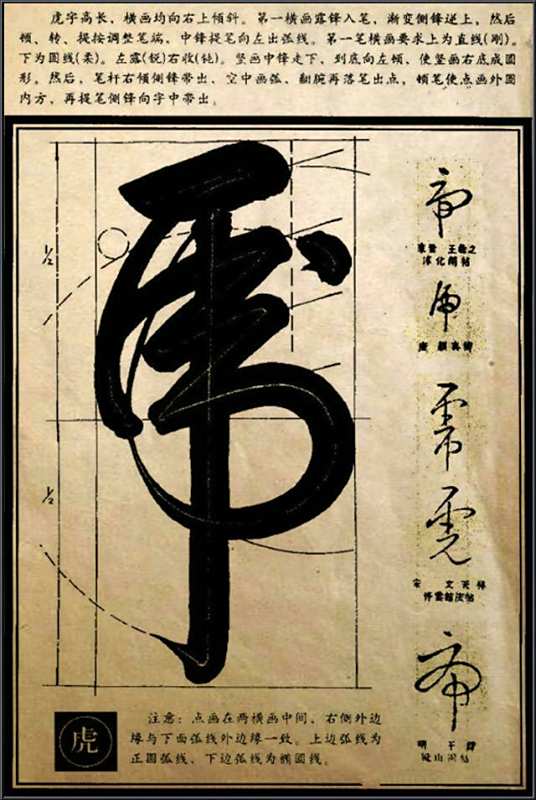 虎字高长，横画均向右上倾斜。第一横画露锋入笔，渐变侧锋逆上，然后
顿、转、提按调整笔端，中锋提笔向左出弧线。第一笔横画要求上为直线(刚)。
下为圆线(柔)。左露(锐)右收(钝)。竖画中锋走下，到底向左顿，使竖画右底成圆
形。然后，笔杆右倾侧锋带出，空中画弧，翻腕再落笔出点，顿笔使点画外圆
内方，再提笔侧锋向字中带出。
½
½
虎
東晉 王羲之
淳化閣帖
唐 顏真卿
宋 文天祥
停雲館法帖
明 王鐸
虎
注意：点画在两横画中间，右侧外边
缘与下面弧线外边缘一致。上边弧线为
正圆弧线，下边弧线为椭圆线。